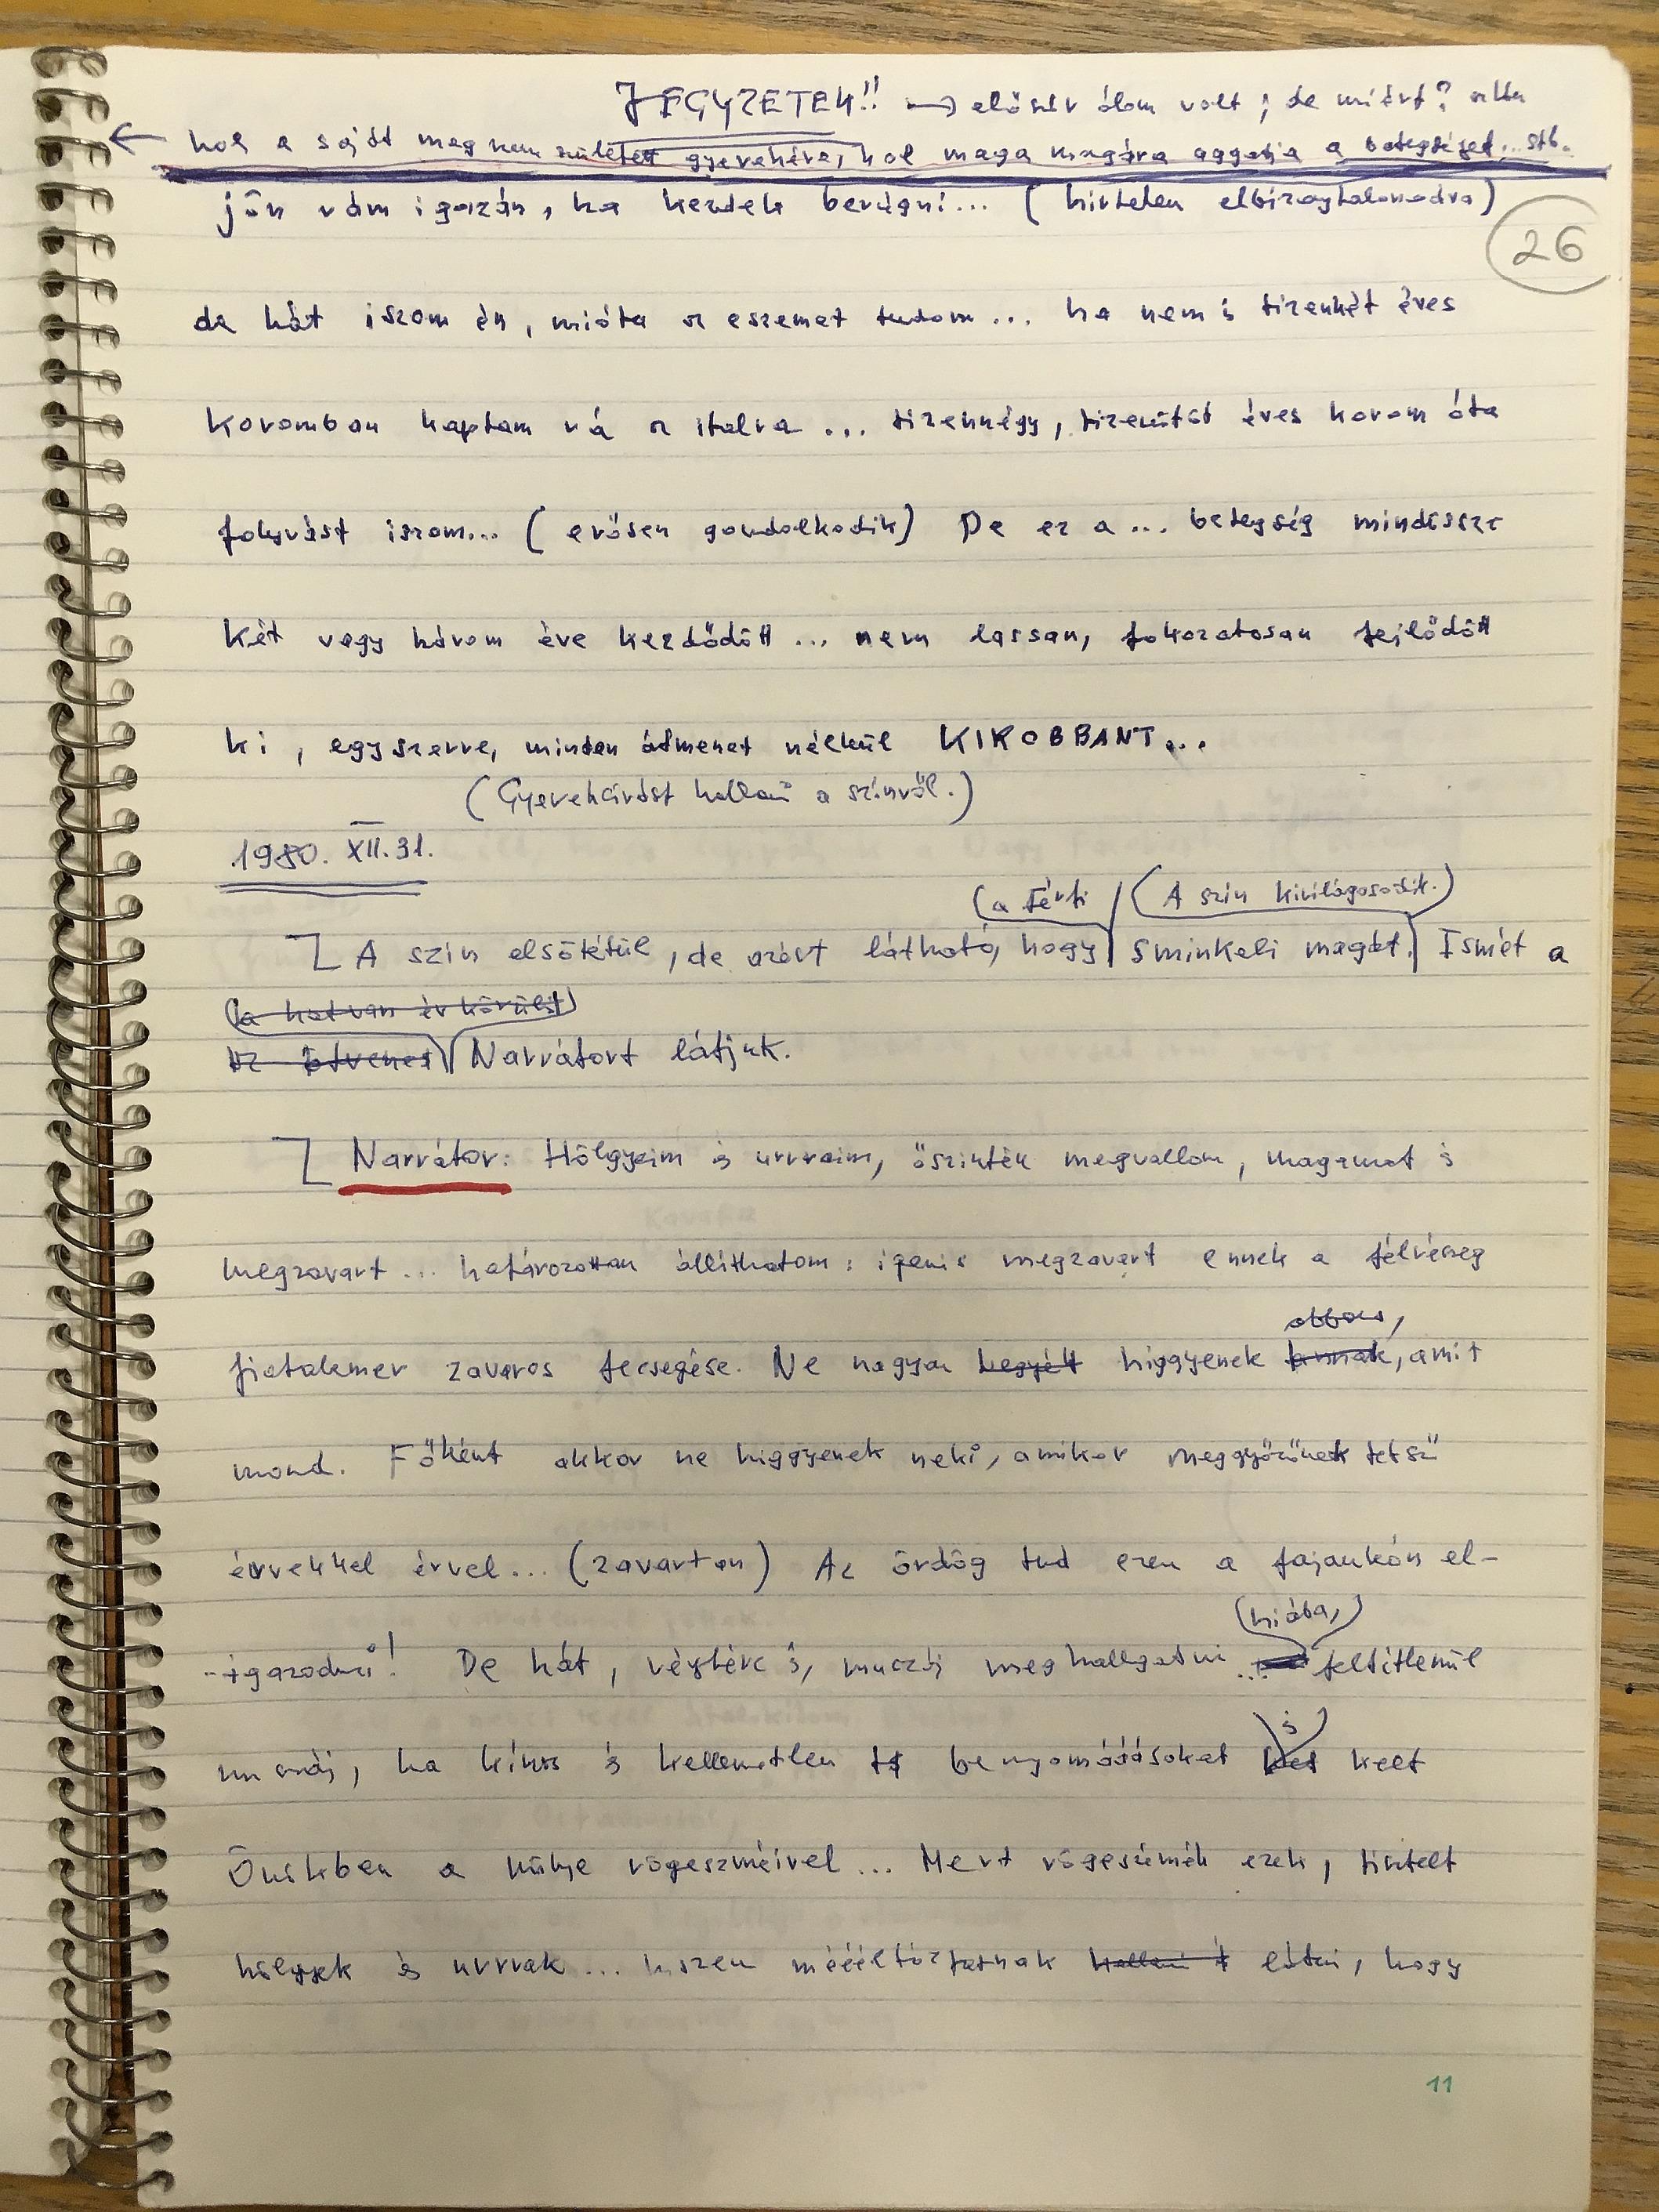 JEGYZETEK!! → először álom volt; de miért?
← hol a saját meg nem született gyerekére, hol maga magára aggatja a betegséget... stb.
jön rám igazán, ha kezdek berúgni... (hirtelen elbizonytalanodva)
26
de hát iszom én, mióta az eszemet tudom... ha nem is tizenkét éves
koromban kaptam rá az italra ... tizennégy, tizenötöt éves korom óta
folyvást iszom... (erősen gondolkodik) De ez a ... betegség mindössze
két vagy három éve kezdődött ... nem lassan, fokozatosan fejlődött
ki, egyszerre, minden átmenet nélkül KIROBBANT...
(Gyereksírást hallani a színről.)
1980. XII.31.
(a férfi (A szín kivilágosodik.)
A szín elsötétül, de azért látható, hogy sminkeli magát. Ismét a
(a hatvan év körüli)
az ötvenes Narrátort látjuk.
Narrátor: Hölgyeim és urrraim, őszintén megvallom, magamat is
megzavart ... határozottan állíthatom: igenis megzavart ennek a félrészeg
abban,
fiatalember zavaros fecsegése. Ne nagyon higgyenek annak, amit
mond. Főként akkor ne higgyenek neki, amikor meggyőzőnek tetsző
érvekkel érvel... (zavartan) Az ördög tud ezen a fajankón el-
(hiába,)
-igazodni! De hát, végtére is, muszáj meghallgatni ... feltétlenül
is
muszáj, ha kínos és kellemetlen benyomááásokat kelt
Önökben a hülye rögeszméivel... Mert rögeszmék ezek, tisztelt
hölgyek és urrrak... hiszen mééééltóztatnak hallani látni, hogy
11